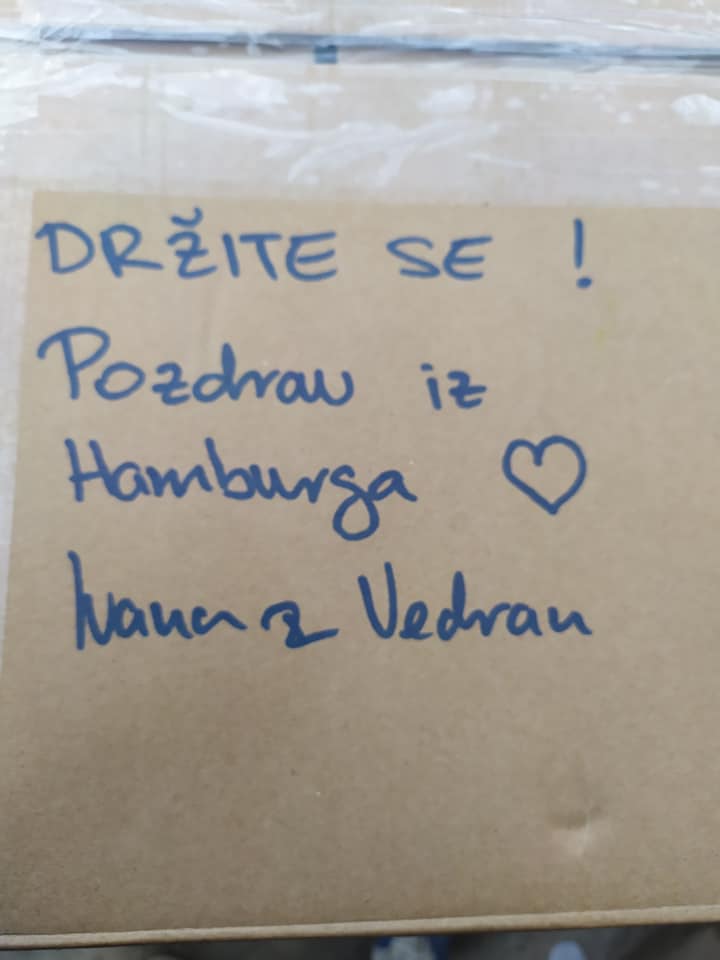 DRŽITE SE !
Pozdrav iz
Hamburga ♡
Ivana & Vedran